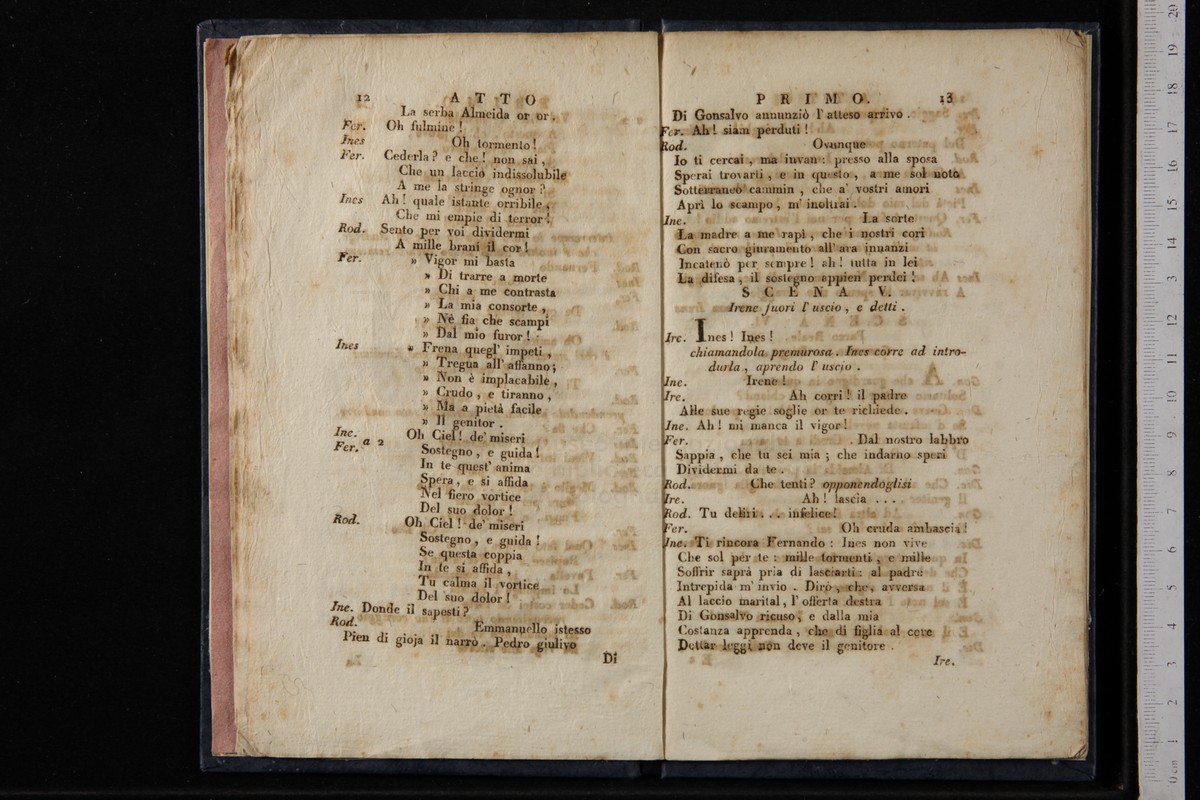 12 ATTO
La serba Almeida or or.
Fer. Oh fulmine!
Ines Oh tormento!
Fer. Cederla? e che! non sai,
Che un laccio indissolubile
A me la stringe ognor?
Ines Ah! quale istante orribile,
Che mi empie di terror!
Rod. Sento per voi dividermi
A mille brani il cor!
Fer. » Vigor mi basta
» Di trarre a morte
» Chi a me contrasta
» La mia consorte,
» Nè fia che scampi
» Dal mio furor!
Ines » Frena quegl' impeti,
» Tregua all' affanno;
» Non è implacabile,
» Crudo, e tiranno,
» Ma a pietà facile
» Il genitor.
Ine. Oh Ciel! de' miseri
Fer. a 2 Sostegno, e guida!
In te quest' anima
Spera, e si affida
Nel fiero vortice
Del suo dolor!
Rod. Oh Ciel! de' miseri
Sostegno, e guida!
Se questa coppia
In te si affida,
Tu calma il vortice
Del suo dolor!
Ine. Donde il sapesti?
Rod. Emmanuello istesso
Pien di gioja il narrò. Pedro giulivo
Di
PRIMO. 13
Di Gonsalvo annunziò l'atteso arrivo.
Fer. Ah! siam perduti!
Rod. Ovunque
Io ti cercai, ma invan: presso alla sposa
Sperai trovarti, e in questo, a me sol noto
Sotterraneo cammin, che a' vostri amori
Aprì lo scampo, m' inoltrai.
Ine. La sorte
La madre a me rapì, che i nostri cori
Con sacro giuramento all' ara innanzi
Incatenò per sempre! ah! tutta in lei
La difesa, il sostegno appien perdei!
SCENA V.
Irene fuori l' uscio, e detti.
Ire. Ines! Ines!
chiamandola premurosa. Ines corre ad intro-
durla, aprendo l' uscio.
Ine. Irene!
Ire. Ah corri! il padre
Alle sue regie soglie or te richiede.
Ine. Ah! mi manca il vigor!
Fer. Dal nostro labbro
Sappia, che tu sei mia; che indarno speri
Dividermi da te.
Rod. Che tenti? opponendoglisi
Ire. Ah! lascia ...
Rod. Tu deliri... infelice!
Fer. Oh cruda ambascia!
Ine. Ti rincora Fernando: Ines non vive
Che sol per te: mille tormenti, e mille
Soffrir saprà pria di lasciarti: al padre
Intrepida m' invio. Dirò, che, avversa
Al laccio marital, l' offerta destra
Di Gonsalvo ricuso, e dalla mia
Costanza apprenda, che di figlia al core
Dettar leggi non deve il genitore.
Ire.